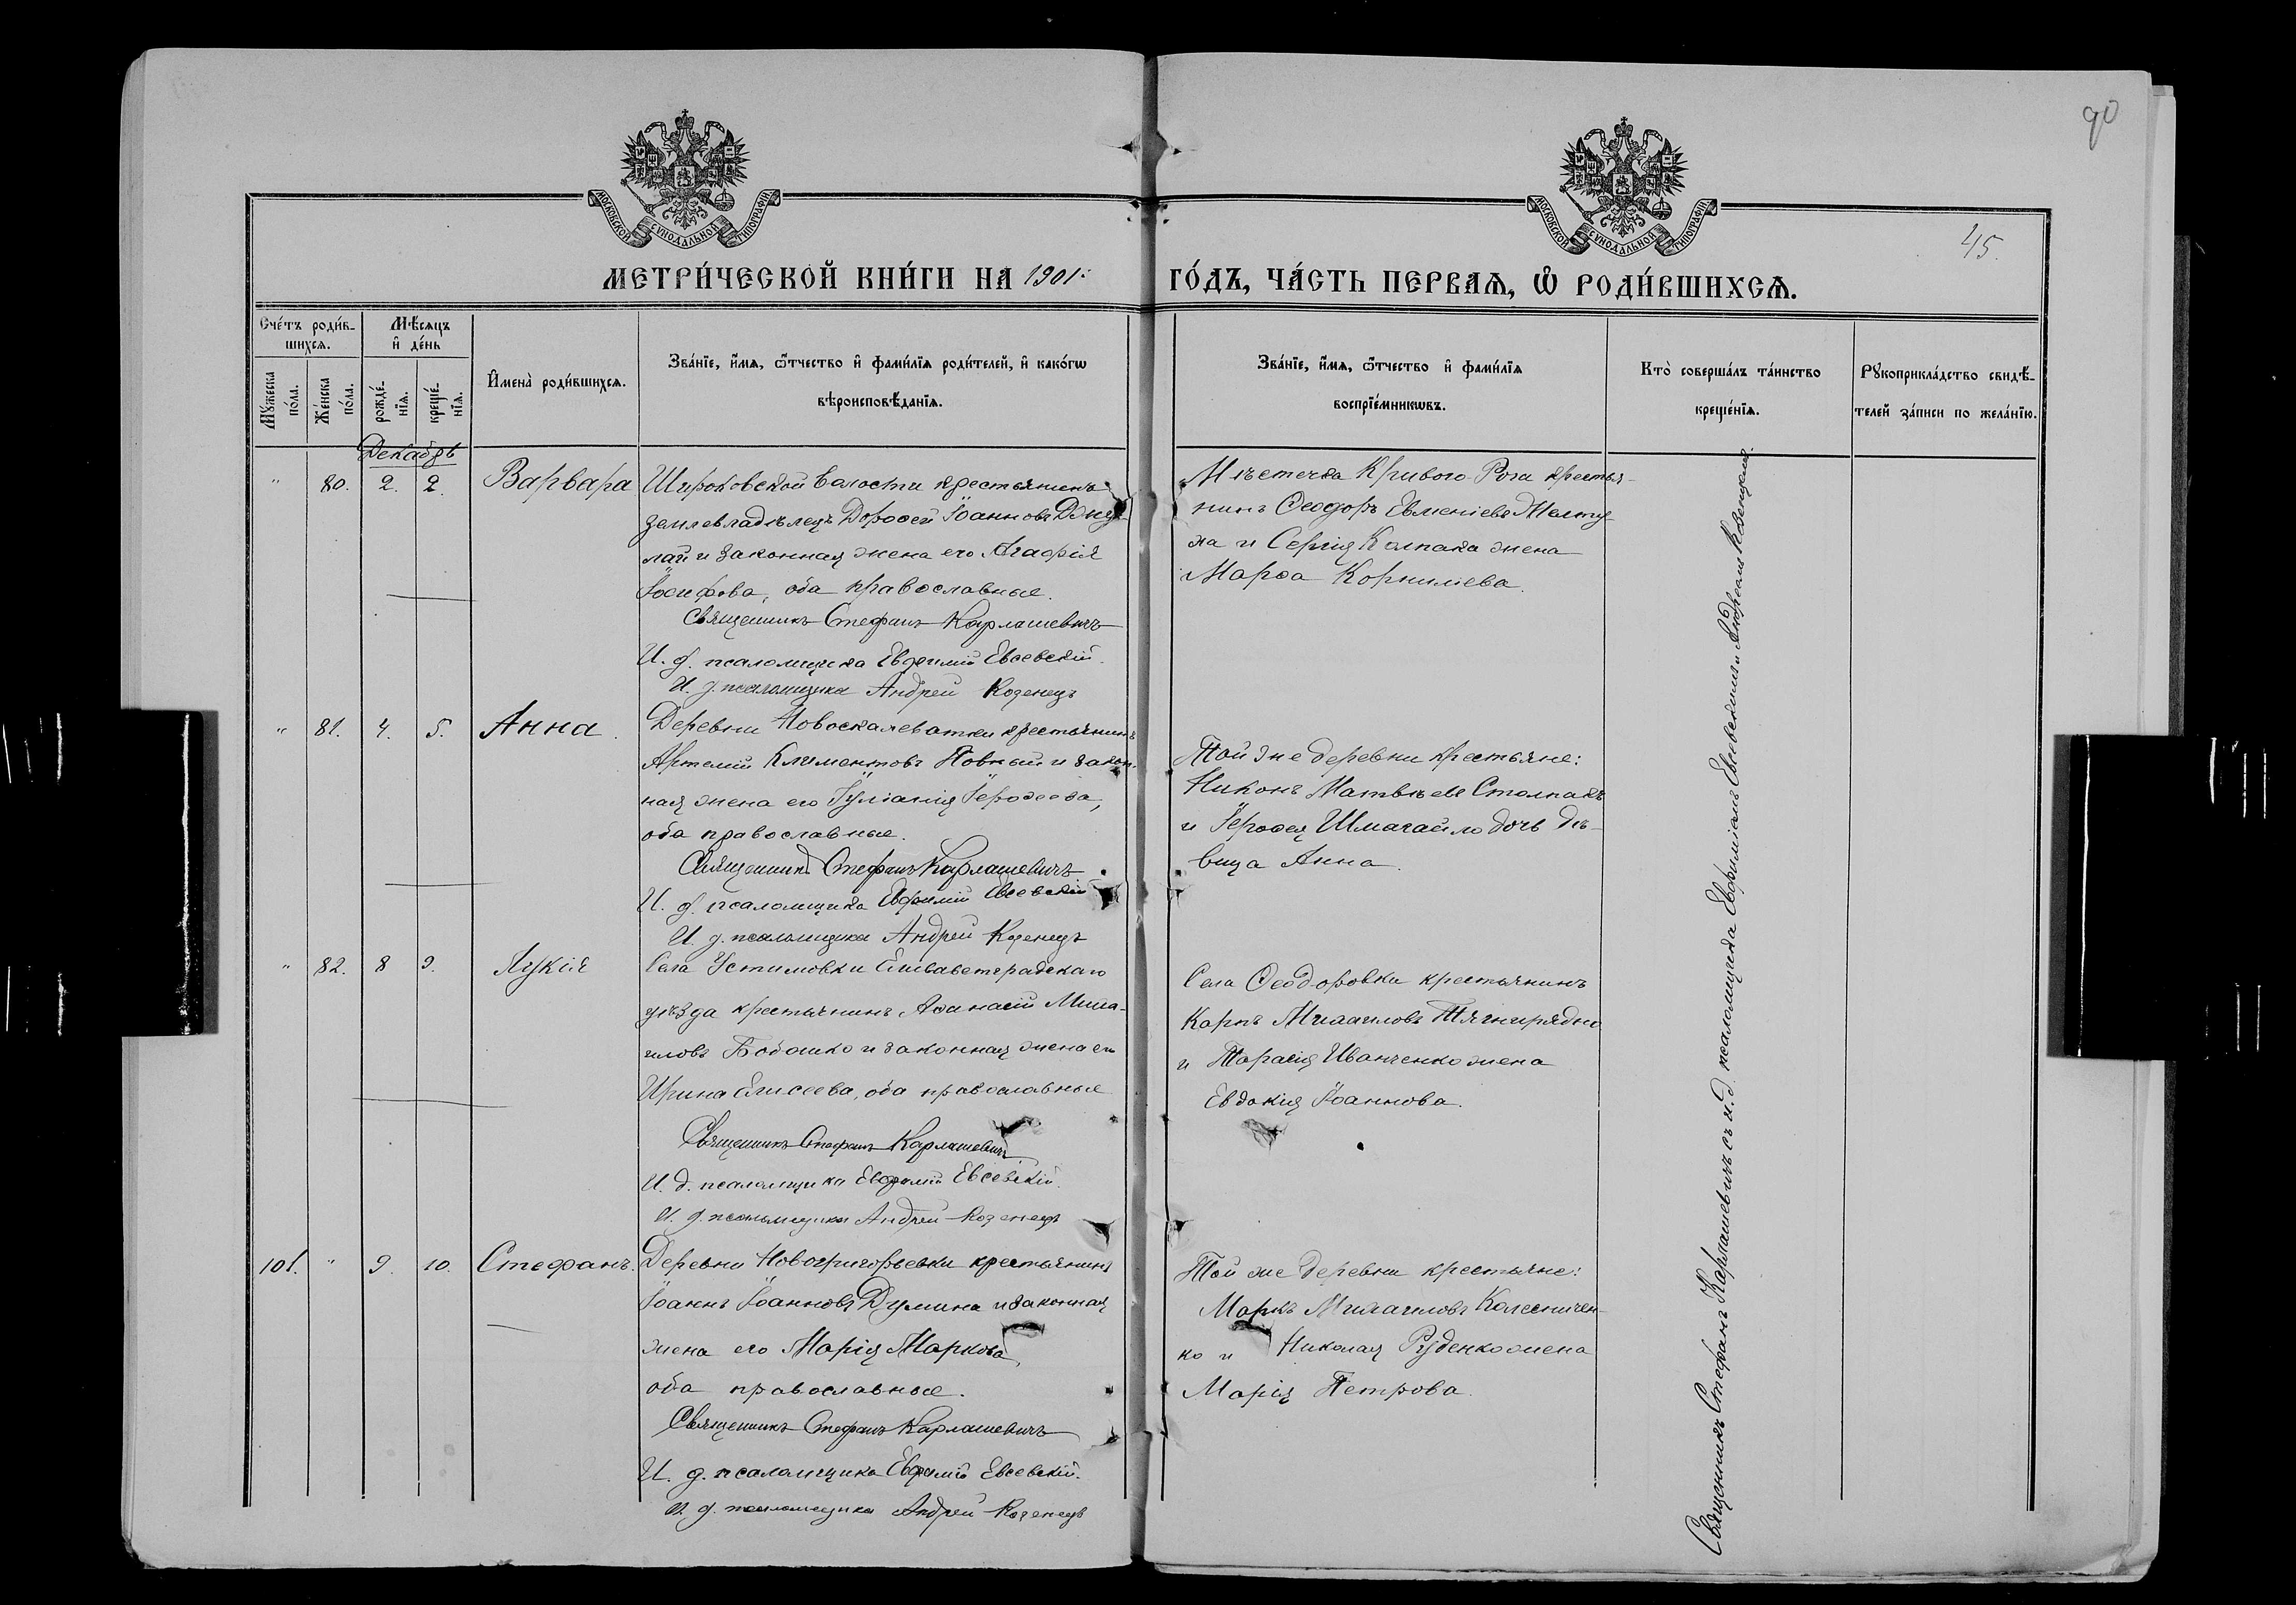 90
45.
МОСКОВСКОЙ СѴНОДАЛЬНОЙ ТИПОГРАФІИ
МОСКОВСКОЙ СѴНОДАЛЬНОЙ ТИПОГРАФІИ
МЕТРИ́ЧЕСКОЙ КНИ́ГИ НА 1901 ГО́ДЪ, ЧА́СТЬ ПЕРВАѦ, Ѽ РОДИ́ВШИХСѦ.
Сче́тъ роди́в-
шихсѧ.
Мꙋ́жеска по́ла.
Же́нска по́ла.
Мѣ́сяцъ
и҆ де́нь
рожде́-
нїѧ.
креще́-
нїѧ.
И҆мена̀ роди́вшихсѧ.
Зва́нїе, и҆́мѧ, ѻ҆́тчество и҆ фами́лїѧ роди́телей, и҆ како́гѡ
вѣроисповѣ́данїѧ.
Зва́нїе, и҆́мѧ, ѻ҆́тчество и҆ фами́лїѧ
воспрїе́мникѡвъ.
Кто̀ соверша́лъ та́инство
креще́нїѧ.
Рꙋкоприкла́дство свидѣ́-
телей за́писи по жела́нїю.
Декабрь
" 80. 2. 2. Варвара
Широковской волости крестьянинъ
землевладѣлецъ Дорофей Іоанновъ
лай и законная жена его Агафія
Іосифова, оба православные.
Священникъ Стефанъ Карлашевичъ
И. д. псаломщика Евфимій Евсевскій.
И. д. псаломщика Андрей Козенецъ
Мѣстечка Кривого Рога крестья-
нинъ Ѳеодоръ Евменіевъ Желту-
ха и Сергія Колпака жена
Марѳа Корнилiева.
" 81. 4. 5. Анна.
Деревни Новоскалеватки крестьянинъ
Артемій Климентовъ Повный и закон-
ная жена его Іуліанія Іероѳеева,
оба православные.
Священникъ Стефанъ Карлашевичъ
И. д. псаломщика Евфимій Евсевскій
И. д. псаломщика Андрей Козенецъ
Той же деревни крестьяне:
Никонъ Матвѣевъ Столпакъ
и Іероѳея Шмагайло дочь дѣ-
вица Анна.
" 82. 8 9. Лукія
Села Устимовки Елисаветградскаго
уѣзда крестьянинъ Аѳанасій Миха-
иловъ Бобошко и законная жена его
Ирина Елисеева, оба православные
Священникъ Стефанъ Карлашевичъ
И. д. псаломщика Евфимій Евсевскій.
И. д. псаломщика Андрей Козенецъ
Села Ѳеодоровки крестьянинъ
Карпъ Михаиловъ Тягнирядно
и Тарасія Иванченко жена
Евдокія Іоаннова.
101. " 9. 10. Стефанъ.
Деревни Новогригорьевки крестьянинъ
Іоаннъ Іоанновъ Думина и законная
жена его Марія Маркова,
оба православные.
Священникъ Стефанъ Карлашевичъ
И. д. псаломщика Евфимій Евсевскій.
И. д. псаломщика Андрей Козенецъ
Той же деревни крестьяне:
Маркъ Михаиловъ Колесничен-
ко и Николая Руденко жена
Марія Петрова.
Священникъ Стефанъ Карлашевичъ съ и. д. псаломщика Евфиміемъ Евсевскимъ и Андреемъ Козенцемъ.